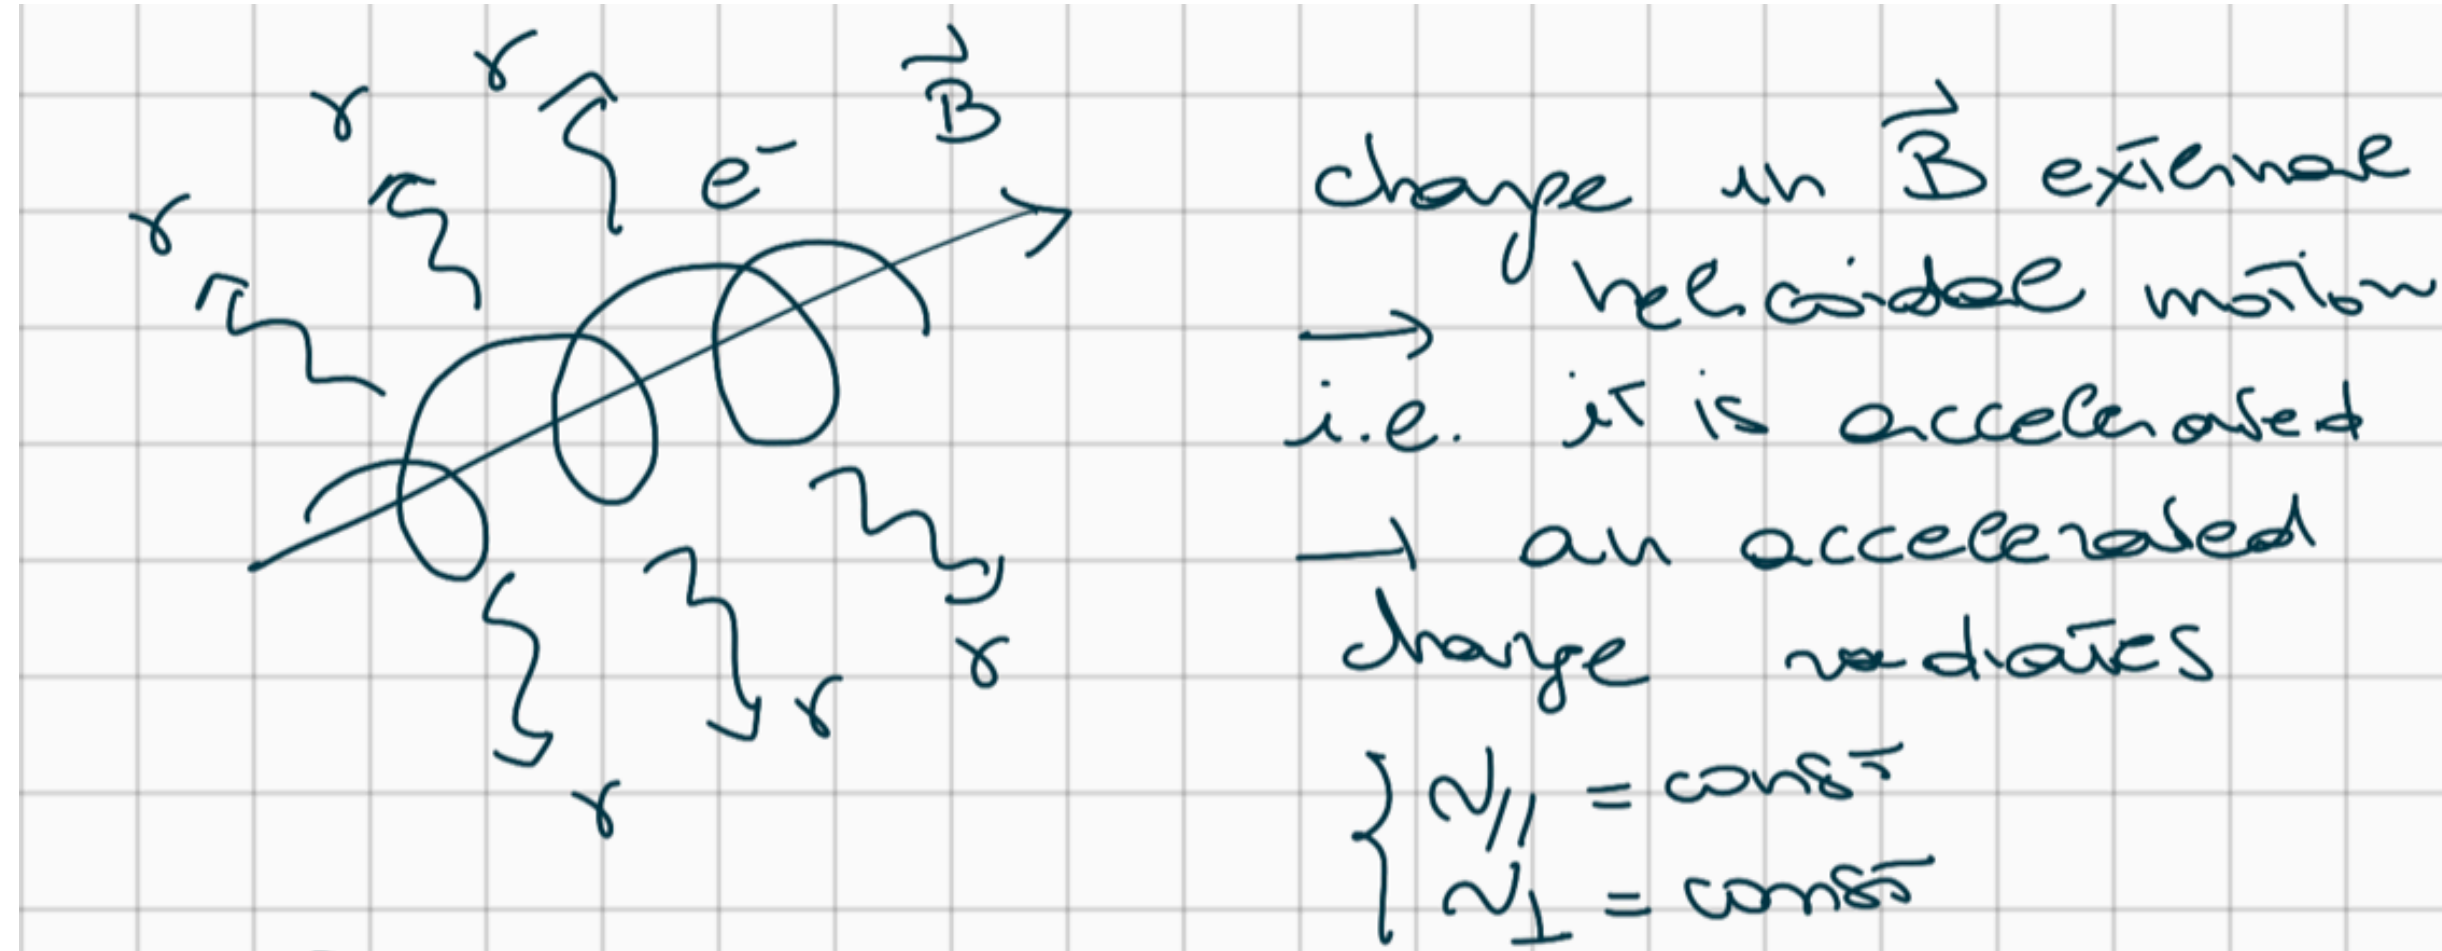 γ
γ
γ
e⁻
B⃗
γ
γ
γ
charge in B⃗ external
→ helicoidal motion
i.e. it is accelerated
→ an accelerated
charge radiates
{ v// = const
v⊥ = const